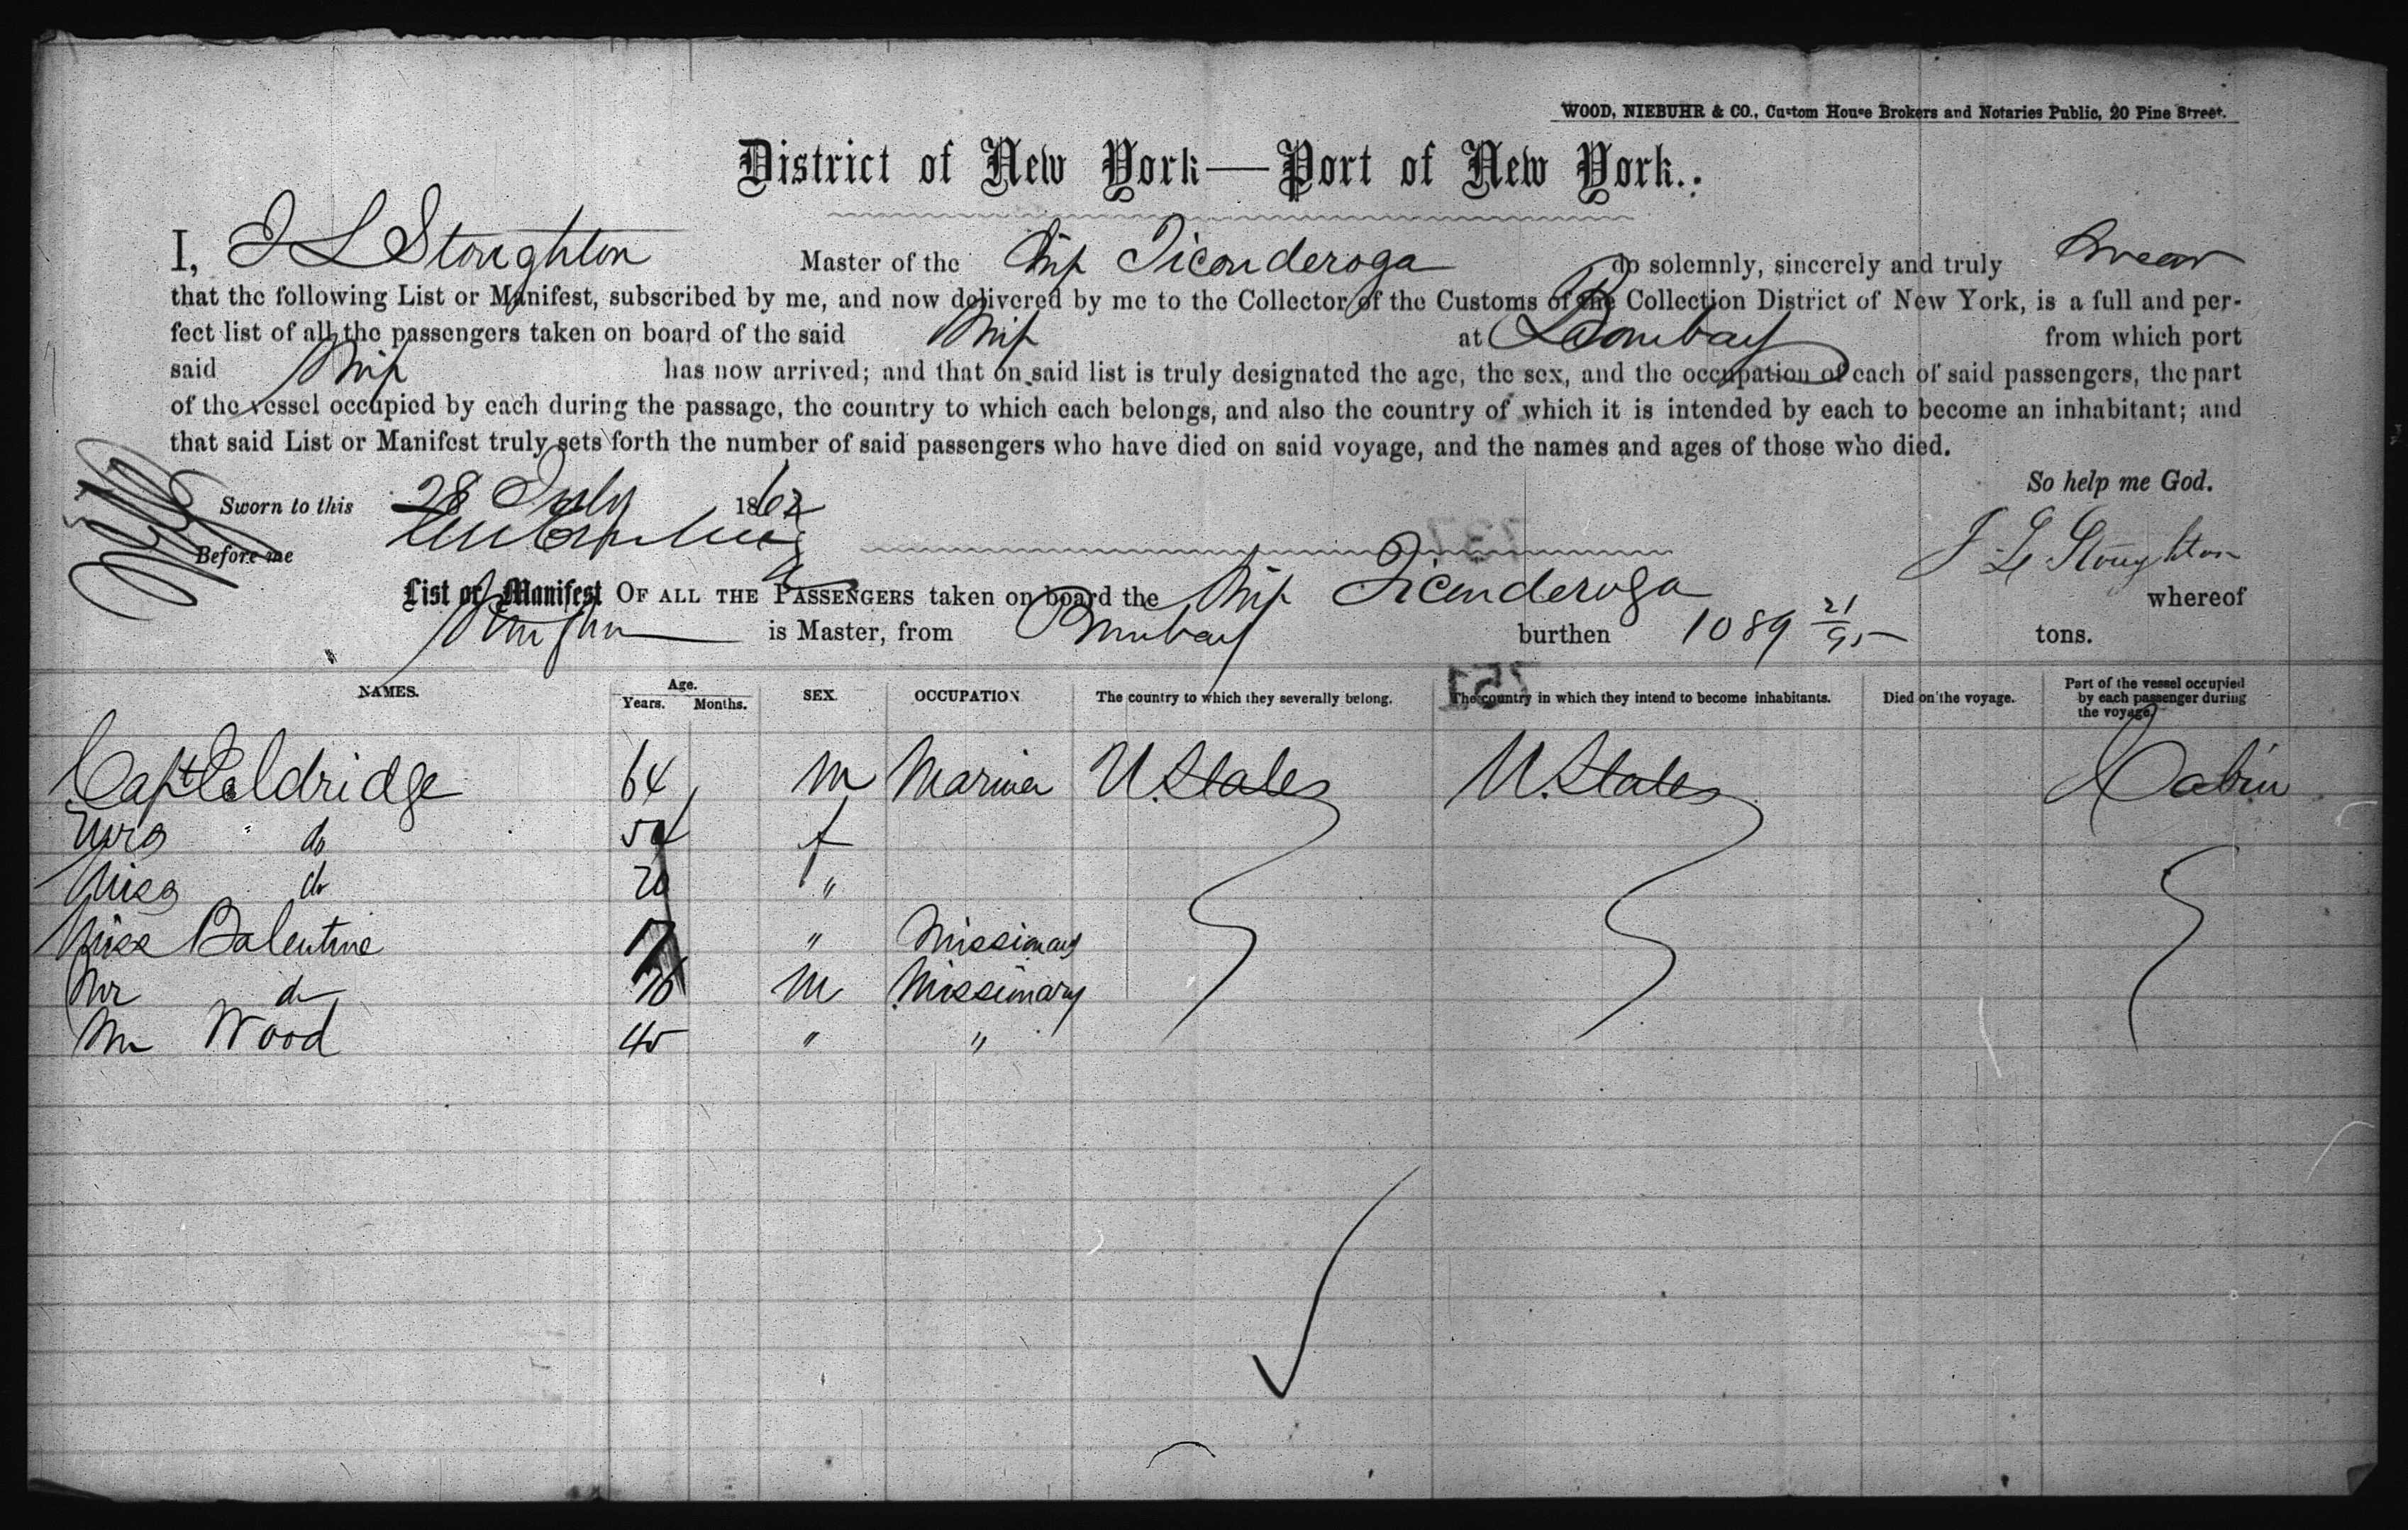 WOOD, NIEBUHR & CO., Custom House Brokers and Notaries Public, 20 Pine Street.
District of New York—Port of New York.
I, J L Stoughton Master of the Ship Ticonderoga do solemnly, sincerely and truly swear
that the following List or Manifest, subscribed by me, and now delivered by me to the Collector of the Customs of the Collection District of New York, is a full and per-
fect list of all the passengers taken on board of the said Ship at Bombay from which port
said Ship has now arrived; and that on said list is truly designated the age, the sex, and the occupation of each of said passengers, the part
of the vessel occupied by each during the passage, the country to which each belongs, and also the country of which it is intended by each to become an inhabitant; and
that said List or Manifest truly sets forth the number of said passengers who have died on said voyage, and the names and ages of those who died.
So help me God.
Sworn to this 28 July 1862
J L Stoughton
Before me
List or Manifest OF ALL THE PASSENGERS taken on board the Ship Ticonderoga whereof
is Master, from Bombay burthen 1089 21/95 tons.
NAMES. Age. Years. Months. SEX. OCCUPATION The country to which they severally belong. The country in which they intend to become inhabitants. Died on the voyage. Part of the vessel occupied by each passenger during the voyage.
Capt Eldridge 64 M Mariner U. States U. States Cabin
Mrs " do 54 f
Miss do 20 "
Miss Balentine 17 " Missionary
Mr do M Missionary
Mr Wood 45 " "
751